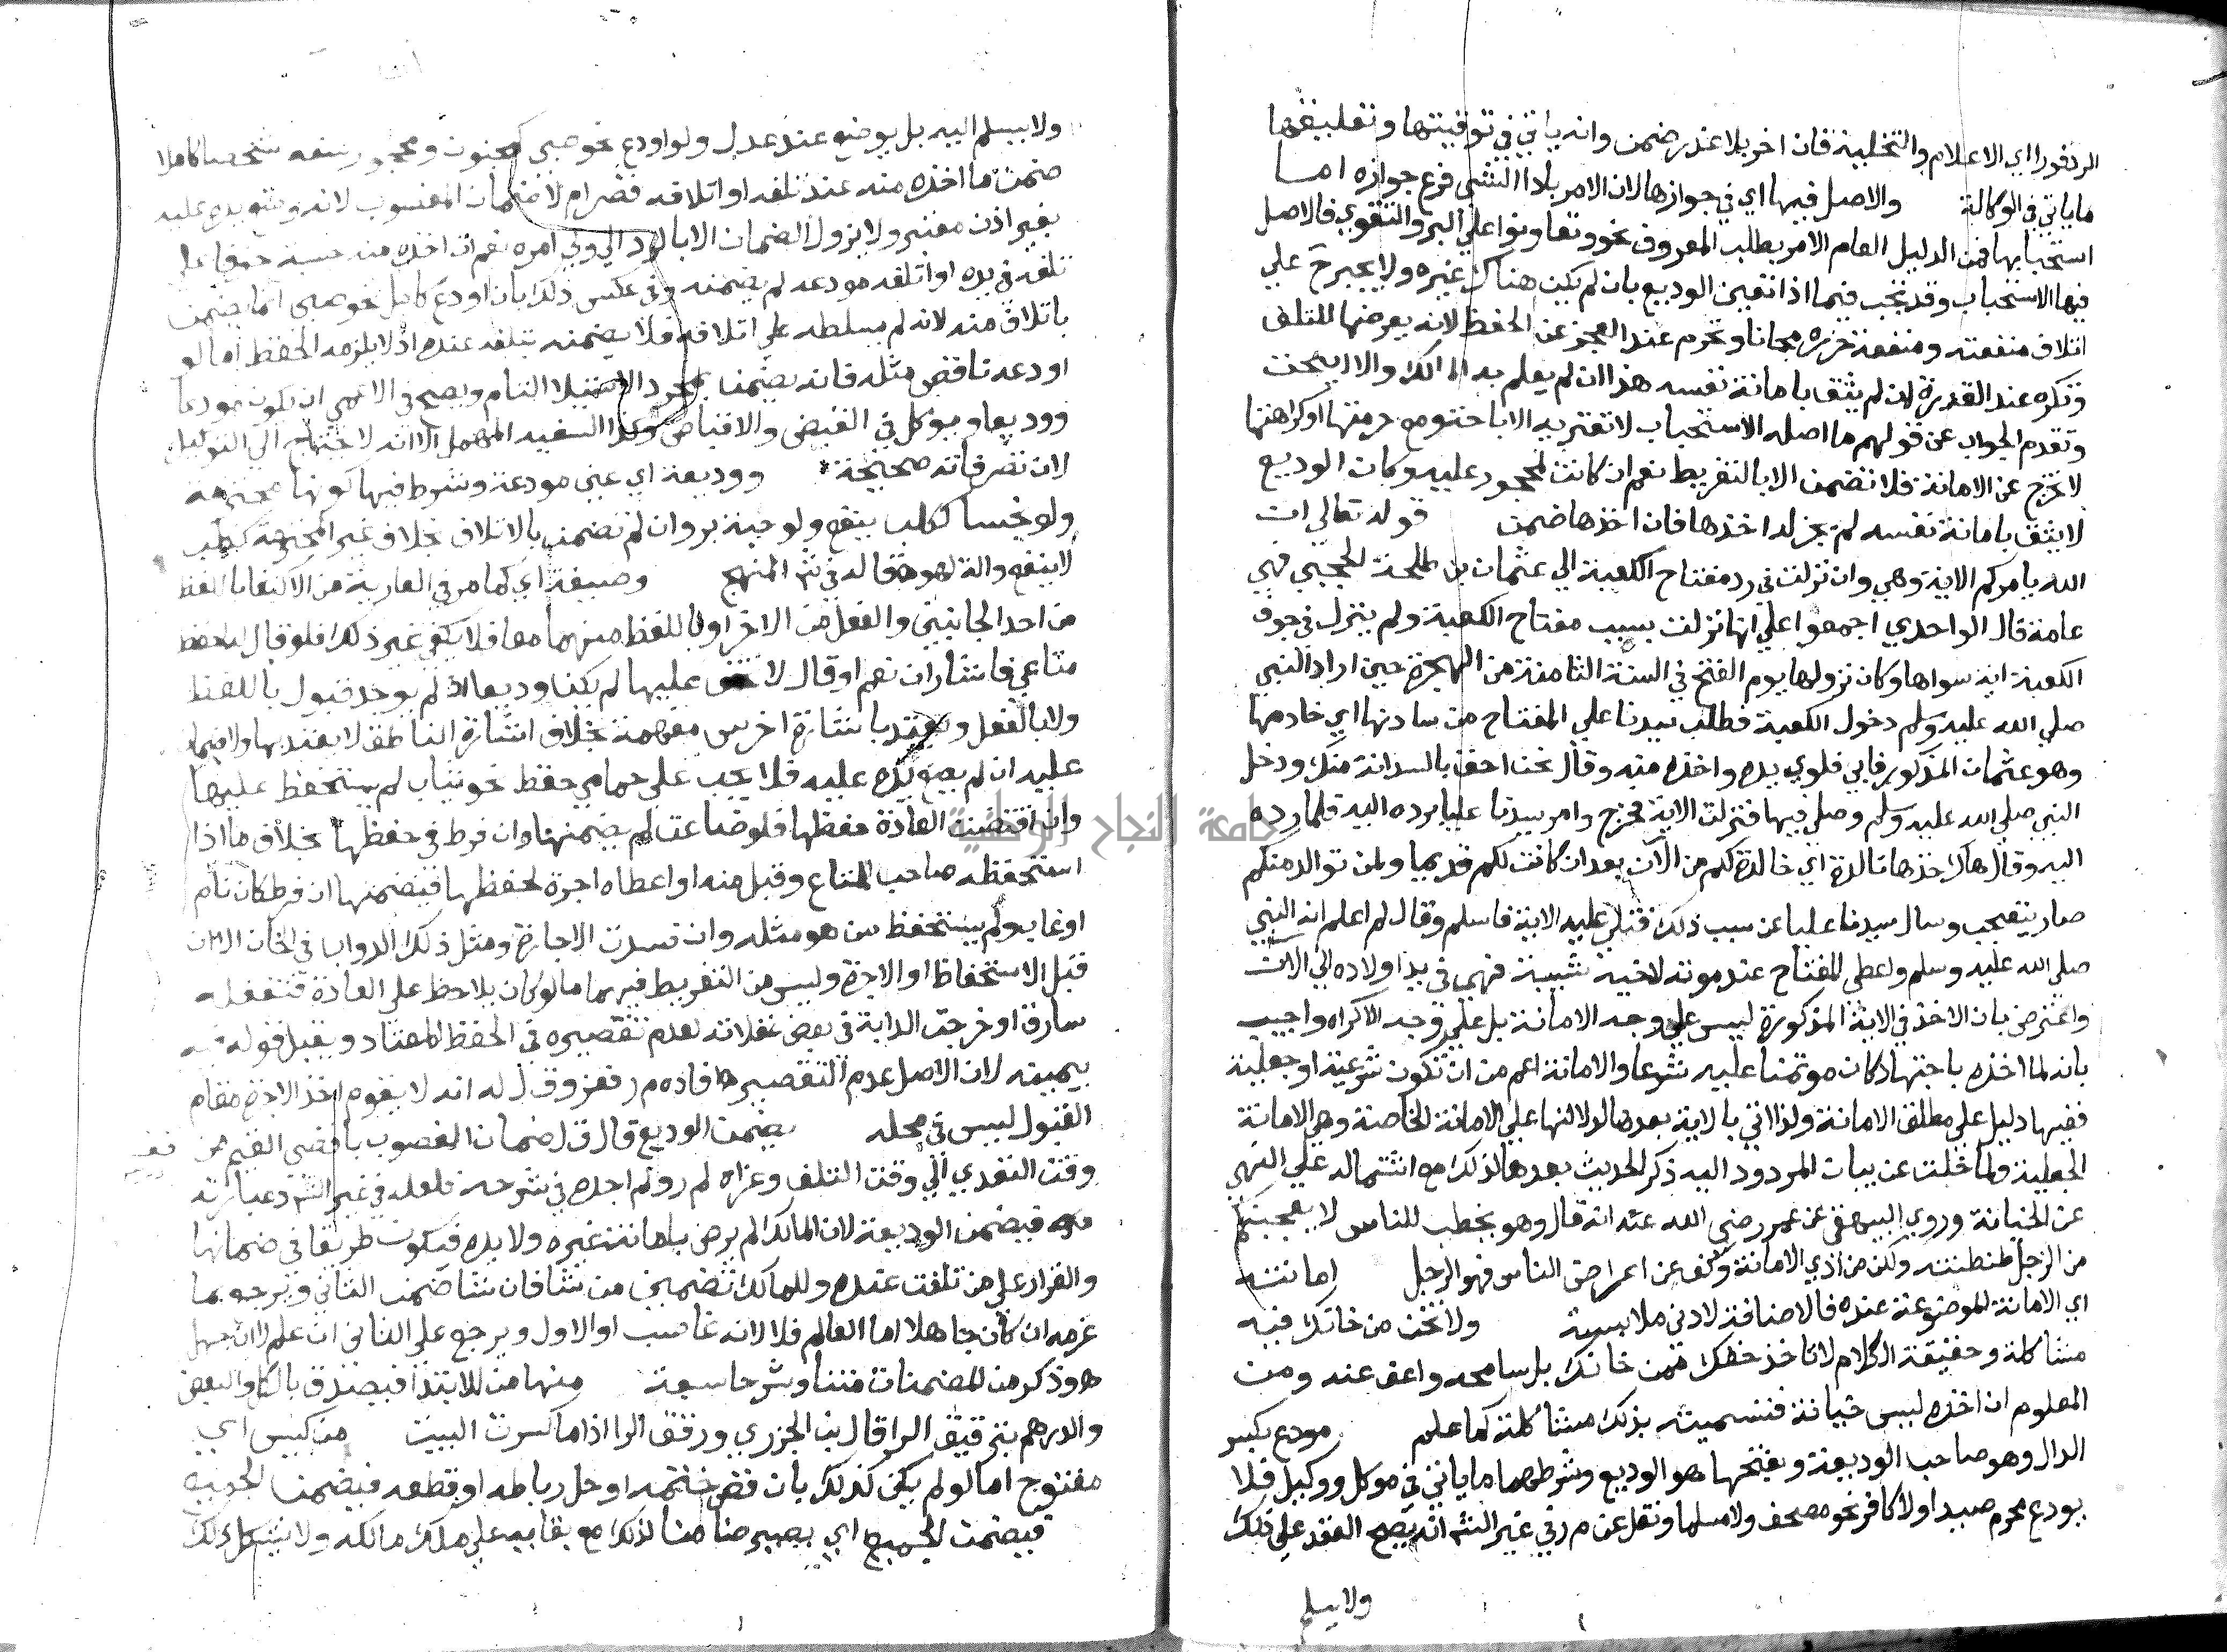 الرد فورا اي الاعلام والتخلية فان اخر بلا عذر ضمن وانه ياتي في توقيتها وتعليقها
ما ياتي في الوكالة والاصل فيها اي في جوازها لان الامر بلاد الشي فرع جوازه اما
استحبابها فمن الدليل العام الامر بطلب المعروف نحو وتعاونوا علي البر والتقوي فالاصل
فيها الاستحباب وقد تجب فيما اذا تعين الوديع بان لم يكن هناك غيره ولا يجبر ح علي
اتلاف منفعته ومنفعة حرزه مجانا وتحرم عند العجز عن الحفظ لانه يعرضها للتلف
وتكره عند القدرة لمن لم يثق بامانة نفسه هذا ان لم يعلم به المالك والا ابيحت
وتقدم الجواب عن قولهم ما اصله الاستحباب لا تعتريه الاباحة ومع حرمتها او كراهتها
لا تخرج عن الامانة فلا تضمن الا بالتفريط نعم ان كانت لمحجور عليه وكان الوديع
لا يثق بامانة نفسه لم يجز له اخذها فان اخذها ضمن قوله تعالي ان
الله يامركم الاية وهي وان نزلت في رد مفتاح الكعبة الي عثمان بن طلحة الحجبي فهي
عامة قال الواحدي اجمعوا علي انها نزلت بسبب مفتاح الكعبة ولم ينزل في جوف
الكعبة اية سواها وكان نزولها يوم الفتح في السنة الثامنة من الهجرة حين اراد النبي
صلي الله عليه وسلم دخول الكعبة فطلب سيدنا علي المفتاح من سادنها اي خادمها
وهو عثمان المذكور فابي فلوي يده واخذه منه وقال نحن احق بالسدانة منك ودخل
النبي صلي الله عليه وسلم وصلي فيها فنزلت الاية فخرج وامر سيدنا عليا برده اليه فلما رده
اليه وقال هاك خذها تالدة اي خالدة لكم من الآن بعد ان كانت لكم قديما ولمن توالد منكم
صار يتعجب وسال سيدنا عليا عن سبب ذلك فتلي عليه الاية فاسلم وقال لم اعلم انه النبي
صلي الله عليه وسلم واعطي المفتاح عند موته لاخيه شيبة فهي في يد اولاده الي الان
واعترض بان الاخذ في الاية المذكورة ليس علي وجه الامانة بل علي وجه الاكراه واجيب
بانه لما اخذه باجتهاد كان موتمنا عليه شرعا والامانة اعم من ان تكون شرعية او جعلية
ففيها دليل علي مطلق الامانة ولذا اتي بالاية بعدها لدلالتها علي الامانة الخاصة وهي الامانة
الجعلية ولما خلت عن بيان المردود اليه ذكر الحديث بعدها لذلك مع اشتماله علي النهي
عن الخيانة وروي البيهقي عن عمر رضي الله عنه انه قال وهو يخطب للناس لا يعجبنكم
من الرجل طنطنته ولكن من ادي الامانة وكف عن اعراض الناس فهو الرجل امانته
اي الامانة الموضوعة عنده فالاضافة لادني ملابسة ولا تخن من خانك فيه
مشاكلة وحقيقة الكلام لا تاخذ حظك ممن خانك بل سامحه واعف عنه ومن
المعلوم ان اخذه ليس خيانة فتسميته بذلك مشاكلة كما علم مودع بكسر
الدال وهو صاحب الوديعة وبفتحها هو الوديع وشرطهما ما ياتي في موكل ووكيل فلا
يودع محرم صيدا ولا كافر نحو مصحف ولا مسلما ونقل عن م ر في غير الشرح انه يصح العقد علي ذلك
ولا يسلم
ولا يسلم اليه بل يوضع عند عدل ولو اودع نحو صبي كمجنون ومحجور سفه شخصا كاملا
ضمن ما اخذه منه عند تلفه او اتلافه لانه وضع يده عليه
بغير اذن معتبر ولا يزول الضمان الا بالرد الي ولي امره نعم ان اخذه منه حسبة خوفا علي
تلفه في يده او اتلفه مودعه لم يضمنه وفي عكس ذلك بان اودع كامل نحو صبي انما يضمن
باتلاف منه لانه لم يسلطه علي اتلافه فلا يضمنه بتلفه عنده اذ لا يلزمه الحفظ اما لو
اودعه ناقص مثله فانه يضمن بمجرد الاستيلا التام ويصح في الاعمي ان يكون مودعا
ووديعا ويوكل في القبض والاقباض وكذا السفيه المهمل الا انه لا يحتاج الي التوكيل
لان تصرفاته صحيحة ووديعة اي عين مودعة وشرط فيها كونها محترمة
ولو نجسا ككلب ينفع ولو حبة بر وان لم تضمن بالاتلاف بخلاف غير المحترمة ككلب
لا ينفع والة لهو قاله في شرح المنهج وصيغة اي كما مر في العارية من الاكتفا باللفظ
من احد الجانبين والفعل من الاخر او باللفظ منهما معا فلا يكفي غير ذلك فلو قال احفظ
متاعي فاشار ان نعم او قال لا عليها لم يكن وديعا اذ لم يوجد قبول باللفظ
ولا بالفعل ويعتد باشارة اخرس مفهمة بخلاف اشارة الناطق لا يعتد بها ولا ضمان
عليه ان لم يضع يده عليه فلا يجب علي حمامي حفظ نحو ثياب لم يستحفظ عليها
وان اقتضت العادة حفظها فلو ضاعت لم يضمنها وان فرط في حفظها بخلاف ما اذا
استحفظه صاحب المتاع وقبل منه او اعطاه اجرة لحفظها فيضمنها ان فرط كان نام
او غاب ولم يستحفظ من هو مثله وان فسدت الاجارة ومثل ذلك الدواب في الخان الا ان
قبل الاستحفاظ او الاجرة وليس من التفريط فيهما ما لو كان يلاحظ علي العادة فتغفله
سارق او خرجت الدابة في بعض غفلاته لعدم تقصيره في الحفظ المعتاد ويقبل قوله فيه
بيمينه لان الاصل عدم التقصير افاده م ر له انه لا يقوم اخذ الاجرة مقام
القبول ليس في محله يضمن الوديع قال ق ل ضمان المغصوب باقصي القيم من
وقت التعدي الي وقت التلف وعزاه لم ر ولم اجده في شرحه فلعله في غير الشرح وعبارته
فيضمن الوديعة لان المالك لم يرض بامانة غيره ولا يده فيكون طريقا في ضمانها
والقرار علي من تلفت عنده وللمالك تضمين من شا فان شا ضمن الثاني ويرجع بما
غرمه ان كان جاهلا اما العالم فلا لانه غاصب او الاول ويرجع علي الثاني ان علم لا ان جهل
وذكر من المضمنات متنا وشرحا سبعة منها من للابتدا فيصدق بالكل والبعض
والدرهم بترقيق الرا قال ابن الجزري ورقق الرا اذا ما كسرت البيت من كيس اي
مفتوح اما لو لم يكن كذلك بان فض ختمه او حل رباطه او قطعه فيضمن الجميع
فيضمن الجميع اي يصير ضامنا لذلك مع بقايه علي ملك مالكه ولا يشكل ذلك
جامعة النجاح الوطنية